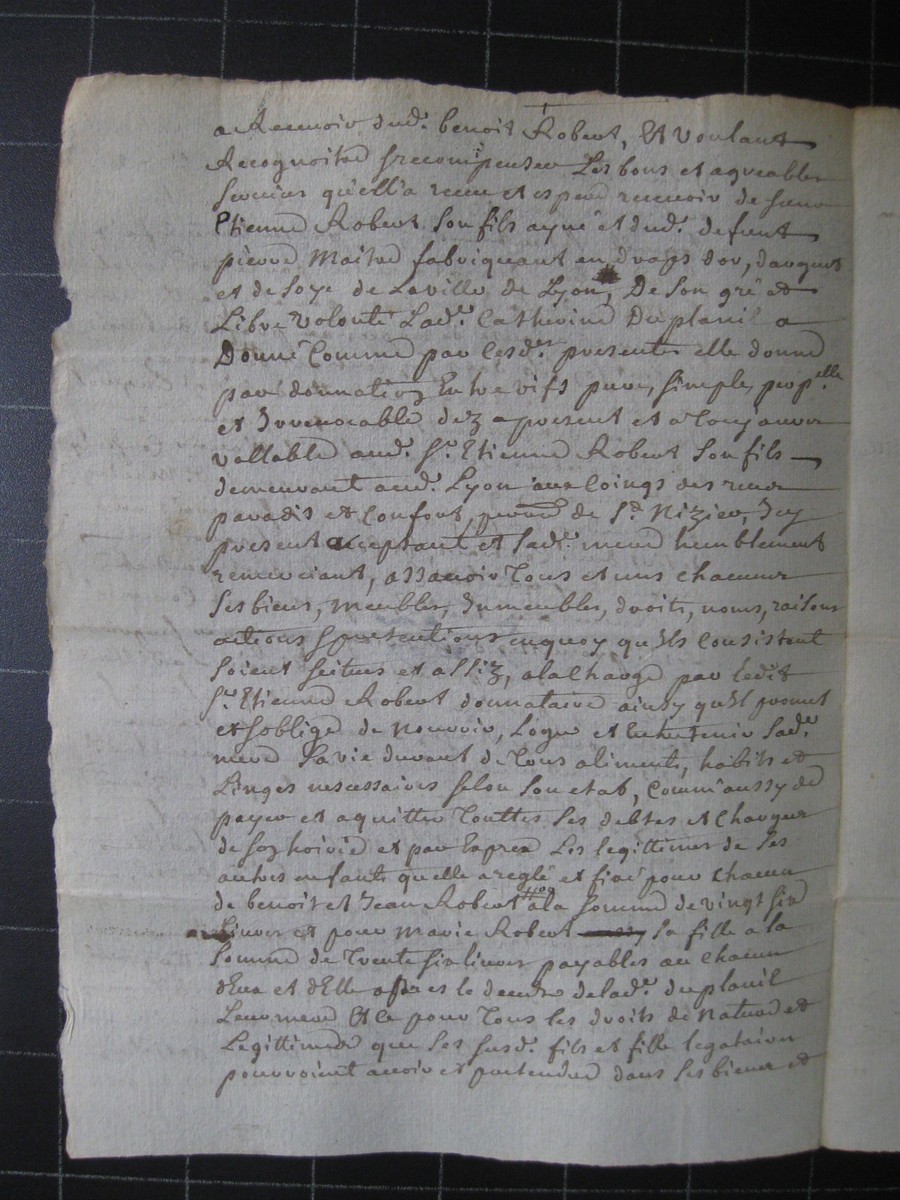 a Recevoir dud.t benoit Robert, Et voulant
Recognoitre & recompenser Les bons et agreables
services qu'ell'a receu et espere recevoir de sieur
Etienne Robert son fils ayné et dud.t defunt
pierre Maitre fabriquant en draps dor, dargent
et de soye de Laville de Lyon, De son gré et
Libre volonté Lad.e Catherine Duplanil a
Donné Comme par cesd.es presentes elle donne
par donnation Entre vifs pure, simple, perp.elle
et Irrevocable dez apresent et a toujours
vallable aud.t S.r Etienne Robert son fils
demeurant aud.t Lyon aux Coings des rues
paradis et Confort, parroisse de S.t Nizier, Icy
present acceptant et sad.e mere humblement
remerciant, assavoir Tous et uns chacuns
ses biens, meubles, Immeubles, droits, noms, raisons
actions & pretentions enquoy qu'ils Consistent
soient scitues et assiz, alaCharge par ledit
S.r Etienne Robert donnataire ainsy qu'il promet
et soblige de nourrir, Loger et Entretenir sad.e
mere sa vie durant de Tous aliments, habits et
Linges nescessaires selon son etat, Comm'aussy de
payer et aquitter Touttes ses debtes et Charges
de son hoirie et par Exprez Les legittimes de ses
autres enfants quelle a reglé et fixé pour chacun
de benoit et Jean Robert a la somme de vingt six
Livres et pour Marie Robert sa fille a la
somme de Trente six livres payables au Chacun
dEux et dElle apres le decedz delad.e duplanil
Leur mere Et ce pour Tous les droits de Nature et
Legittimes que ses susd.ts fils et fille legataires
pourroient avoir et pretendre dans ses biens et